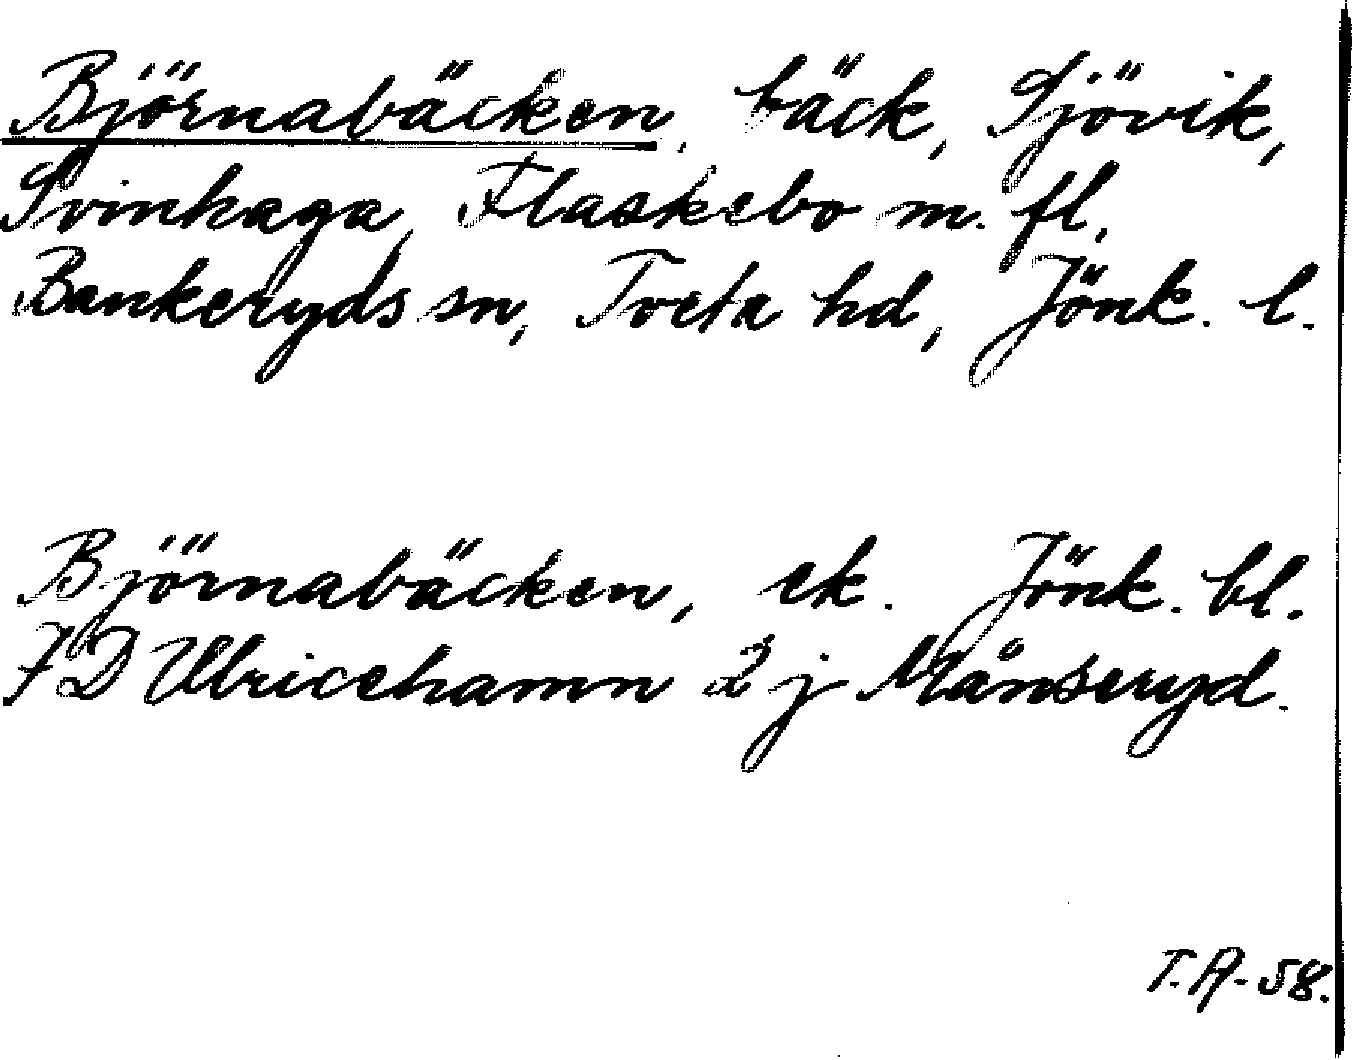 Björnabäcken, bäck, Sjövik,
Svinhaga, Flaskebo m. fl.,
Bankeryds sn, Tveta hd, Jönk. l.
Björnabäcken, ek. Jönk. bl.
7 D Ulricehamn 2 j Månseryd.
T.A-58.